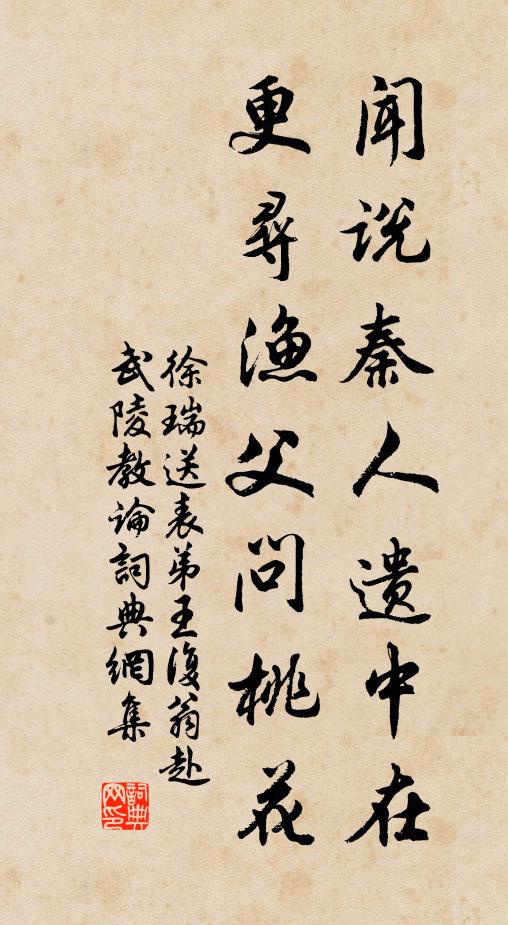 闻说秦人遗中在
更尋渔父问桃花
徐瑞送表弟王復翁赴
武陵教论詞典網集
詞典网印